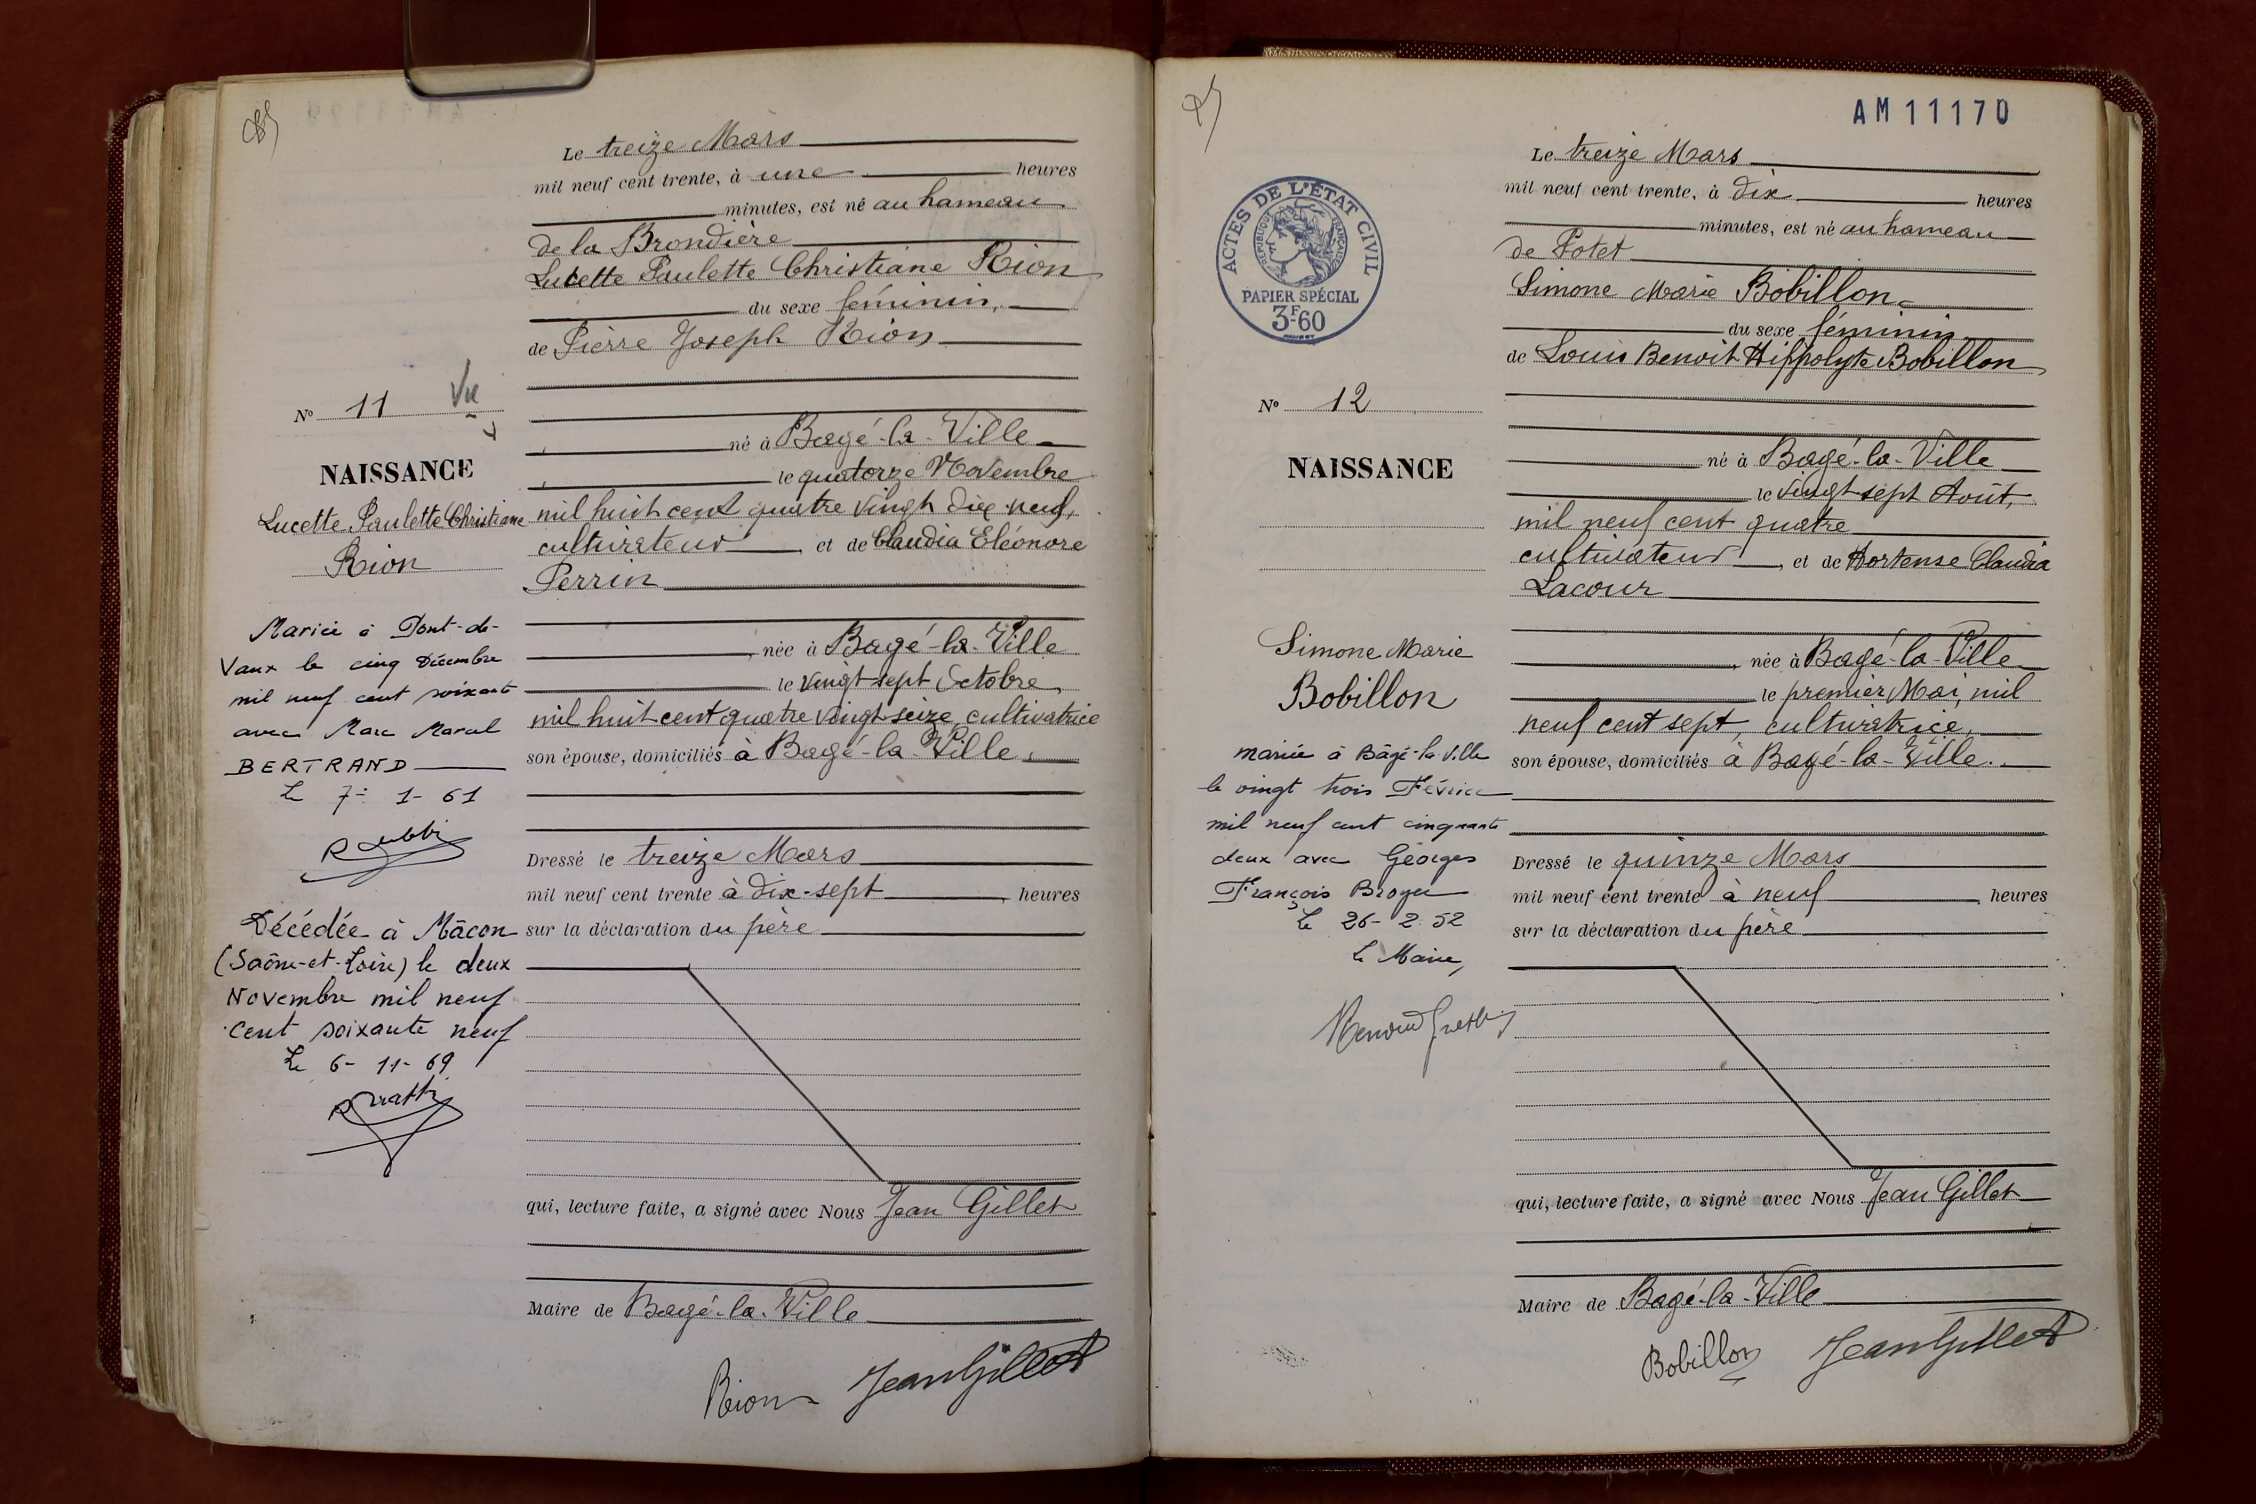 Le treize Mars
mil neuf cent trente, à une heures
minutes, est né au hameau
de la Brondière
Lucette Paulette Christiane Rion
du sexe féminin,
de Pierre Joseph Rion
né à Bagé-la-Ville
le quatorze Novembre
mil huit cent quatre vingt dix neuf,
cultivateur, et de Claudia Eléonore
Perrin
, née à Bagé-la-Ville
le vingt sept Octobre
mil huit cent quatre vingt seize, cultivatrice
son épouse, domiciliés à Bagé-la-Ville.
Dressé le treize Mars
mil neuf cent trente à dix-sept, heures
sur la déclaration du père
qui, lecture faite, a signé avec Nous Jean Gillet
Maire de Bagé-la-Ville
Rion Jean Gillet
No 11 Vu
NAISSANCE
Lucette Paulette Christiane
Rion
Mariée à Pont-de-
Vaux le cinq Décembre
mil neuf cent soixante
avec Marc Marcel
BERTRAND
Le 7-1-61
Décédée à Mâcon
(Saône-et-Loire) le deux
Novembre mil neuf
cent soixante neuf
Le 6-11-69
AM11170
Le treize Mars
mil neuf cent trente, à dix heures
minutes, est né au hameau
de Potet
Simone Marie Bobillon
du sexe féminin
de Louis Benoit Hippolyte Bobillon
né à Bagé-la-Ville
le vingt sept Août,
mil neuf cent quatre
cultivateur, et de Hortense Claudia
Lacour
, née à Bagé-la-Ville
le premier Mai, mil
neuf cent sept, cultivatrice,
son épouse, domiciliés à Bagé-la-Ville.
Dressé le quinze Mars
mil neuf cent trente à neuf, heures
sur la déclaration du père
qui, lecture faite, a signé avec Nous Jean Gillet
Maire de Bagé-la-Ville
Bobillon Jean Gillet
ACTES DE L'ÉTAT CIVIL
RÉPUBLIQUE FRANÇAISE
PAPIER SPÉCIAL
3F60
No 12
NAISSANCE
Simone Marie
Bobillon
mariée à Bâgé-la-Ville
le vingt trois Février
mil neuf cent cinquante
deux avec Géorges
François Broyer
Le 26-2.52
Le Maire,